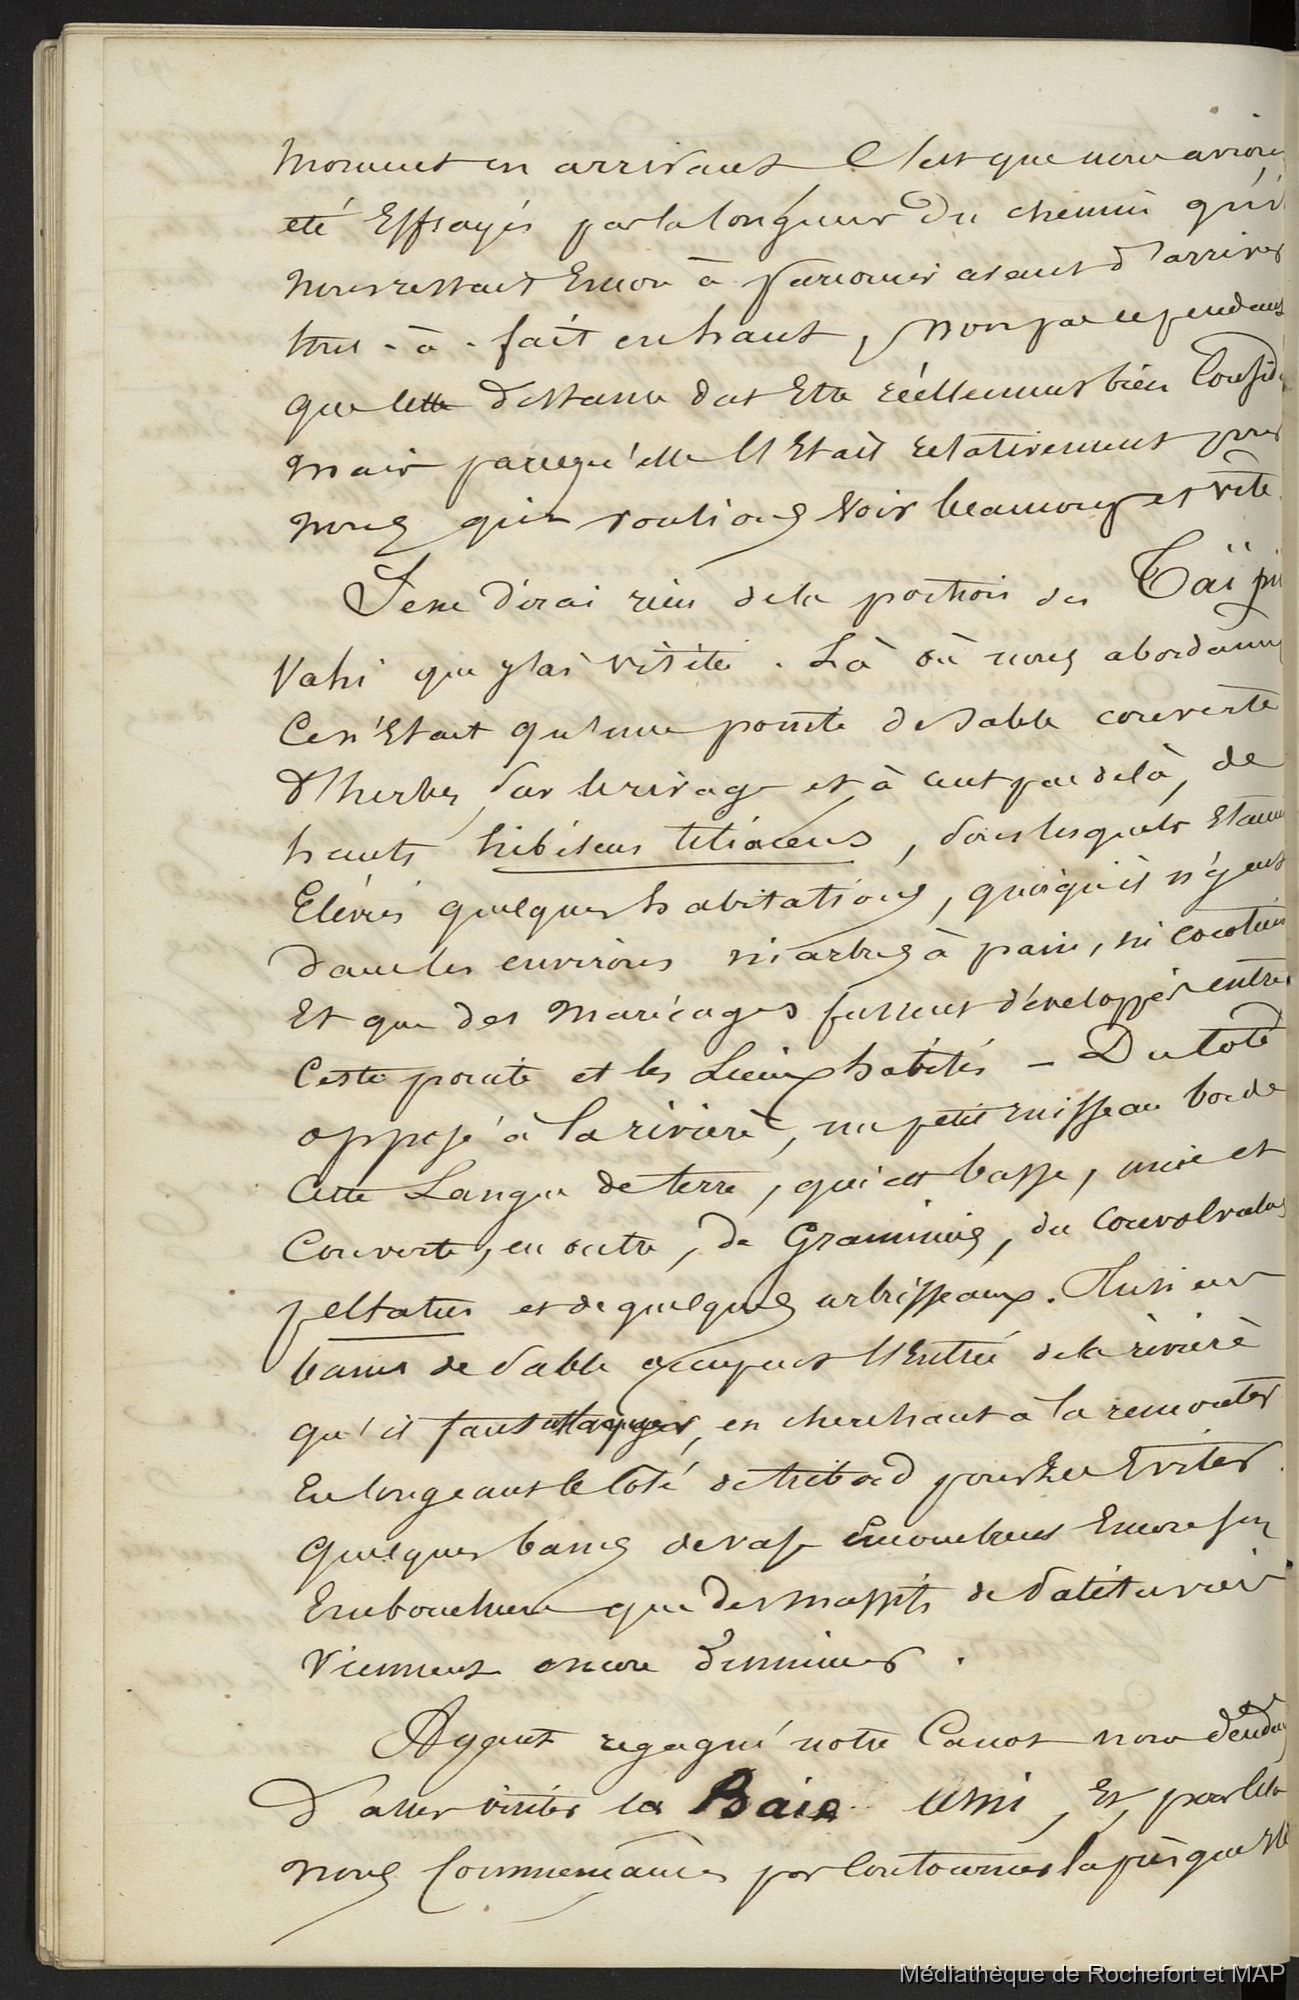 moment en arrivant C'est que nous avions
été Effrayés par la longueur Du chemin qu'il
nous restait Encore à parcourir avant d'arriver
tout-à-fait en haut, non pas cependant
que cette distance dut Etre réellement bien Consid
mais parcequ'elle l'Etait relativement pour
nous qui voulions voir beaucoup et vite.
Je ne dirai rien de la portion des Taï pii
Vahi que j'ai visitée. Là où nous abordames
Ce n'Etait qu'une pointe de sable couverte
d'herbes sur le rivage et à cent pas delà, de
hauts hibiscus tiliaceus, sous lesquels Etaient
Elévés quelques habitations, quoiqu'il n'y eut
dans les environs ni arbres à pain, ni cocotiers
Et que des marécages fussent développés entre
Cette pointe et les Lieux habités – Du coté
opposé à la rivière, un petit ruisseau borde
Cette Langue de terre, qui est basse, unie et
Couverte, en outre, de Graminées, du convolvulus
peltatus et de quelques arbrisseaux. Plusieurs
bancs de sable occupent l'Entrée de la rivière
qu'il faut attaquer, en cherchant à la remonter
En longeant le Coté de tribord pour les Eviter.
Quelques bancs de vase Encombrent Encore son
Embouchure que des massifs de Palétuviers
Viennent encore diminuer.
Ayant regagné notre Canot nous
d'aller visiter la Baie umi, Et, pour cela
nous Commençames par Contourner la presqu'Ile
Médiathèque de Rochefort et MAP